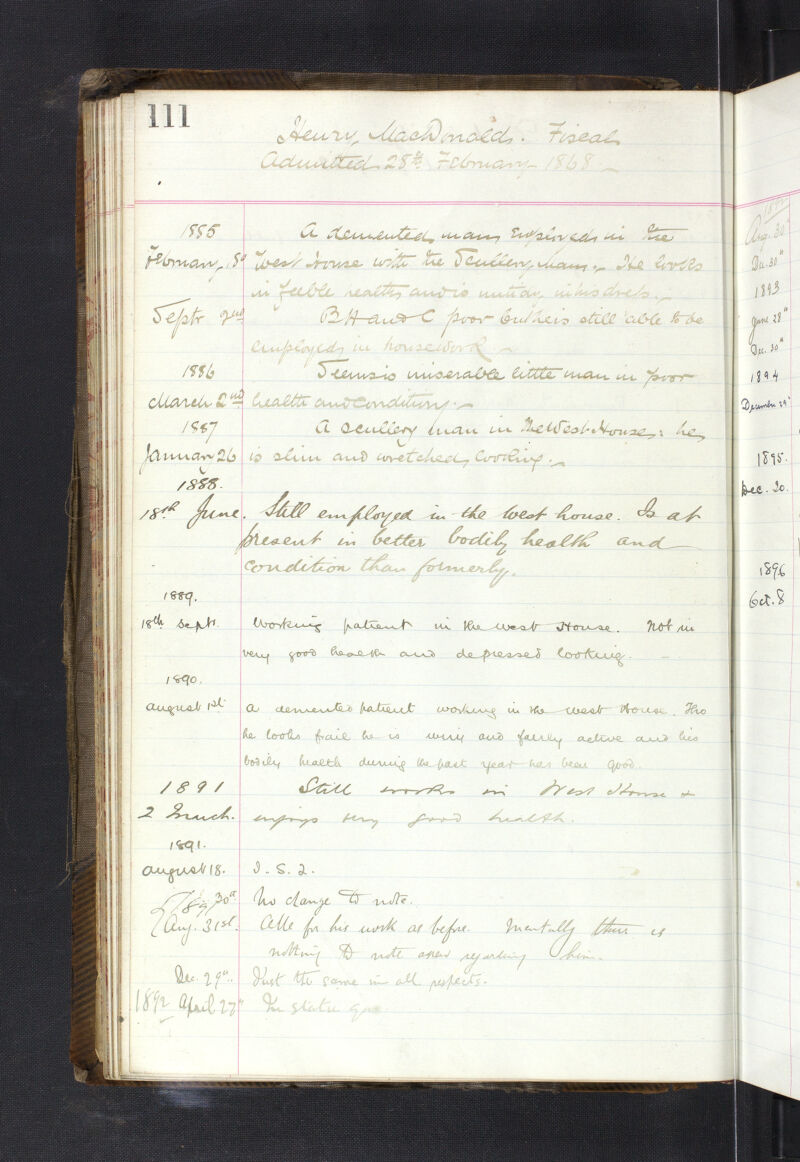 111
Henry MacDonald. Fiscal
Admitted 28th February 1868
1885 A demented man employed in the
February West House with the Scullery man. He looks
in feeble health and is untidy in his dress.
Septr 2nd B H and C poor but he is still able to be
employed in housework.
1886 Seems a miserable little man in poor
March 2nd health and condition.
1887 A scullery man in the West House: he
January 26 is slim and wretched looking.
1888.
18th June. Still employed in the west house. Is at
present in better bodily health and
condition than formerly.
1889.
18th Sept. Working patient in the West House. Not in
very good health and depressed looking.
1890.
August 1st a demented patient working in the West House. Tho
he looks frail he is wiry and fairly active and his
bodily health during the past year has been good.
1891 Still works in West House &
2 March. enjoys very good health.
1891.
August 18. I. S. 2.
30th No change to note.
Aug. 31st. Able for his work as before. Mentally there is
nothing to note anew regarding him.
Dec. 29th. Just the same in all respects.
1892 April 27th In statu quo.
Aug. 30th
Dec. 30th
1893
June 28th
Dec. 30th
1894
December 29th
1895.
Dec. 30.
1896
Oct. 8